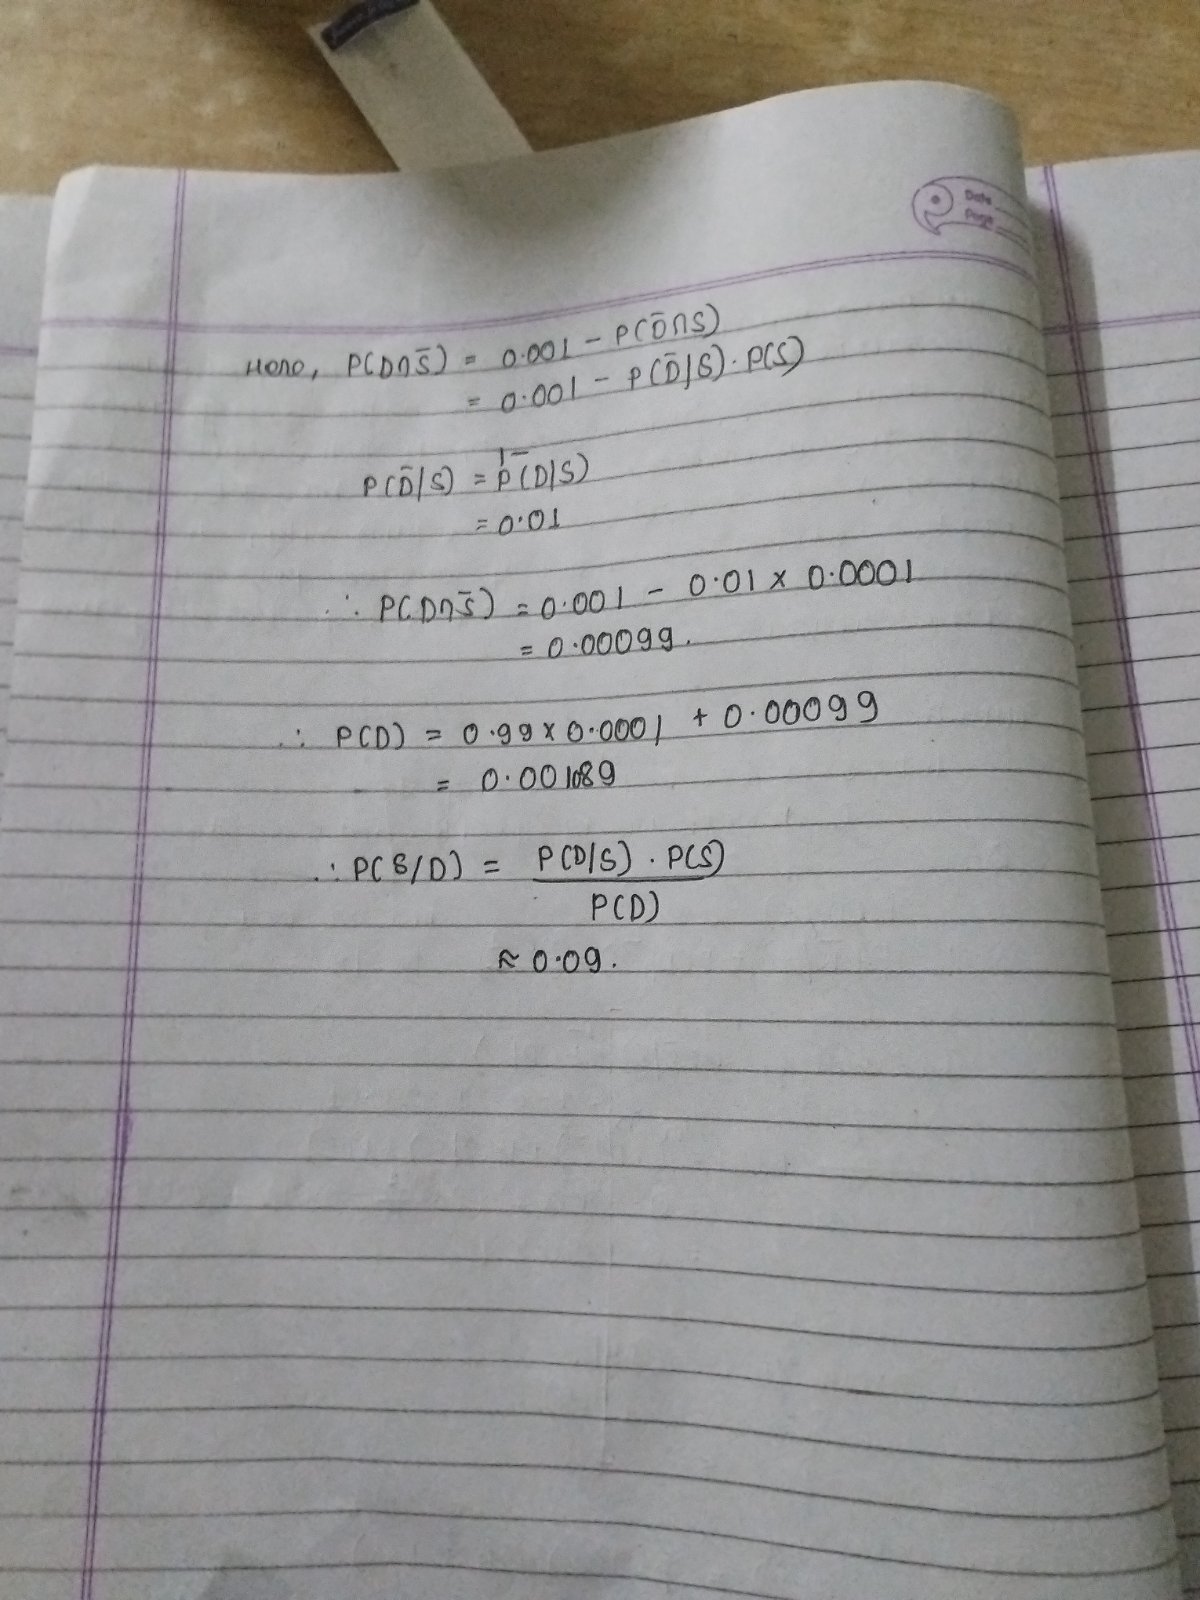 Date
Page
Here, P(D∩S̄) = 0.001 - P(D̄∩S)
= 0.001 - P(D̄/S) . P(S)
P(D̄/S) = 1- P(D/S)
= 0.01
∴ P(D∩S̄) = 0.001 - 0.01 x 0.0001
= 0.00099.
∴ P(D) = 0.99 x 0.0001 + 0.00099
= 0.001089
∴ P(S/D) = P(D/S) . P(S)
P(D)
≈ 0.09.